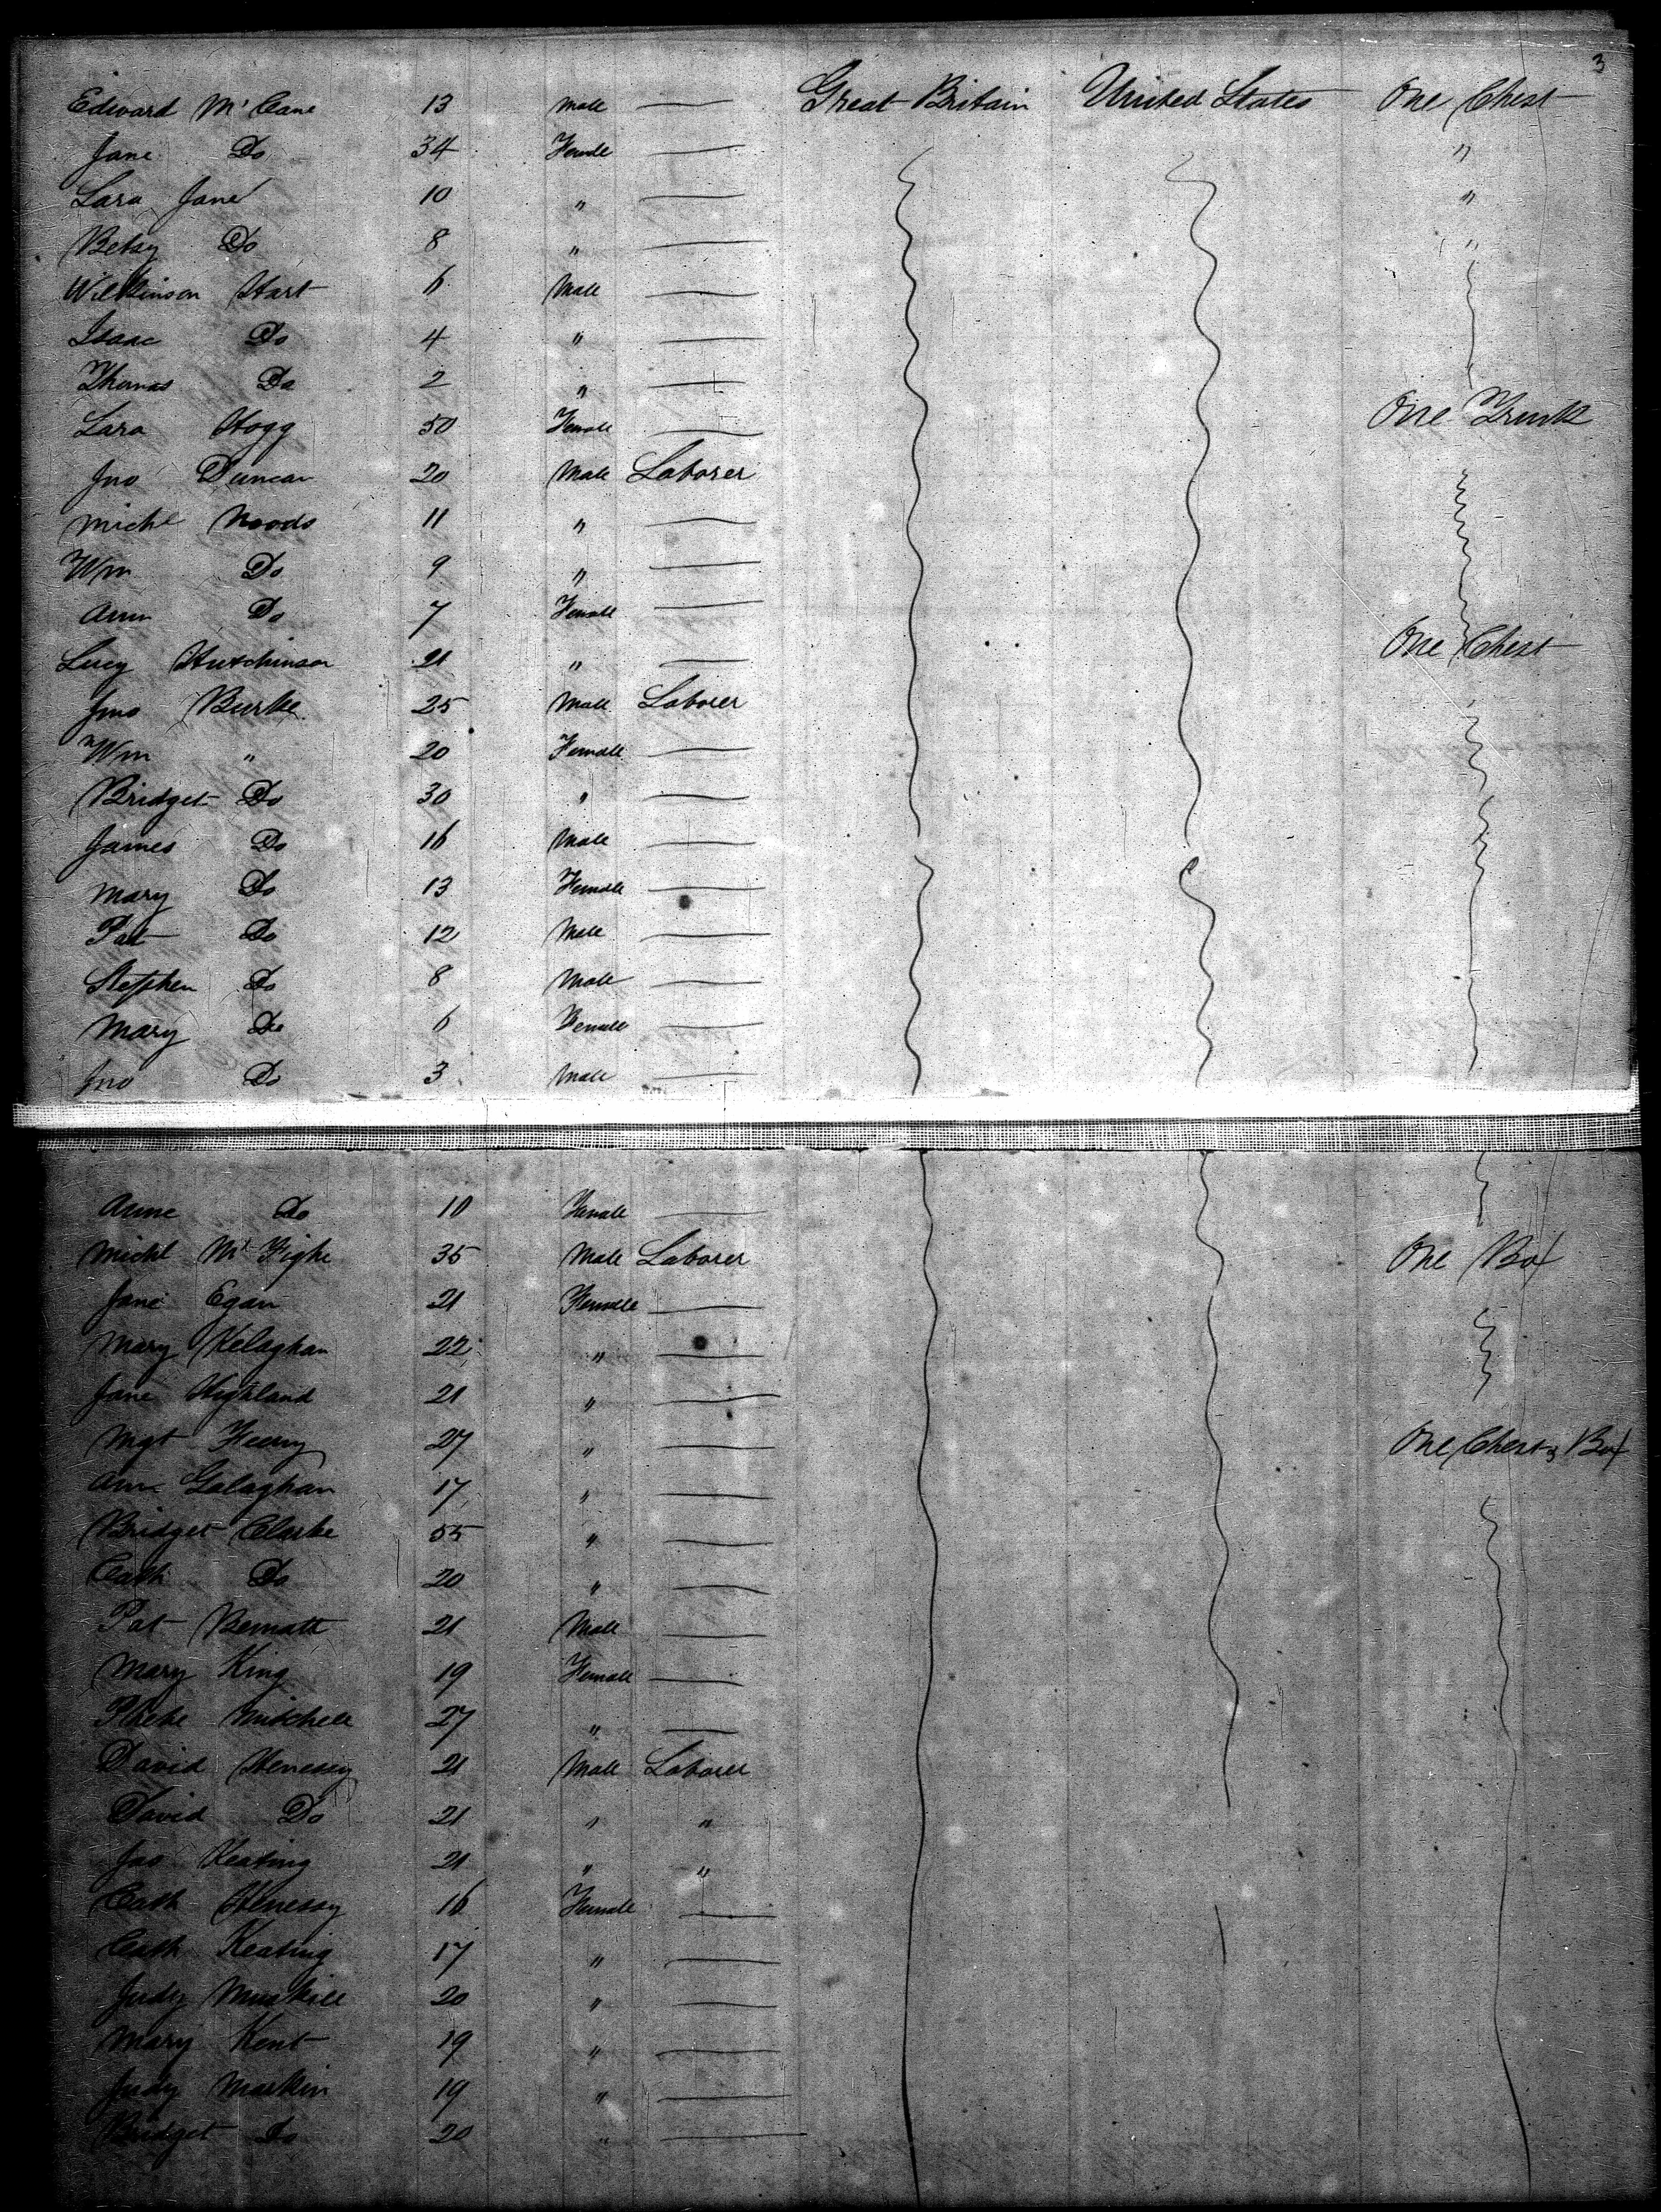 3
Edward Mc Cane 13 Male — Great Britain United States One Chest
Jane Do 34 Female — "
Sara Jane 10 " — "
Betsy Do 8 " — "
Wilkinson Hart 6 Male —
Isaac Do 4 " —
Thomas Do 2 " —
Sara Hogg 50 Female — One Trunk
Jno Duncan 20 Male Laborer
Michl Woods 11 " —
Wm Do 9 " —
Ann Do 7 Female —
Lucy Hutchinson 21 " — One Chest
Jno Burke 25 Male Laborer
Wm " 20 Female —
Bridget Do 30 " —
James Do 16 Male —
Mary Do 13 Female —
Pat Do 12 Male —
Stephen Do 8 Male —
Mary Do 6 Female —
Jno Do 3 Male —
Anne Do 10 Female —
Michl Mc Tighe 35 Male Laborer One Box
Jane Egan 21 Female —
Mary Kelaghan 22 " —
Jane Highland 21 " —
Mgt Feery 27 " — One Chest & Box
Ann Galaghan 17 " —
Bridget Clarke 55 " —
Cath Do 20 " —
Pat 21 Male —
Mary King 19 Female —
Phebe Mitchell 27 " —
David Henessy 21 Male Laborer
David Do 21 " "
Jas Keating 21 " "
Cath Henessy 16 Female —
Cath Keating 17 " —
Judy 20 " —
Mary Kent 19 " —
Judy Markin 19 " —
Bridget Do 20 " —